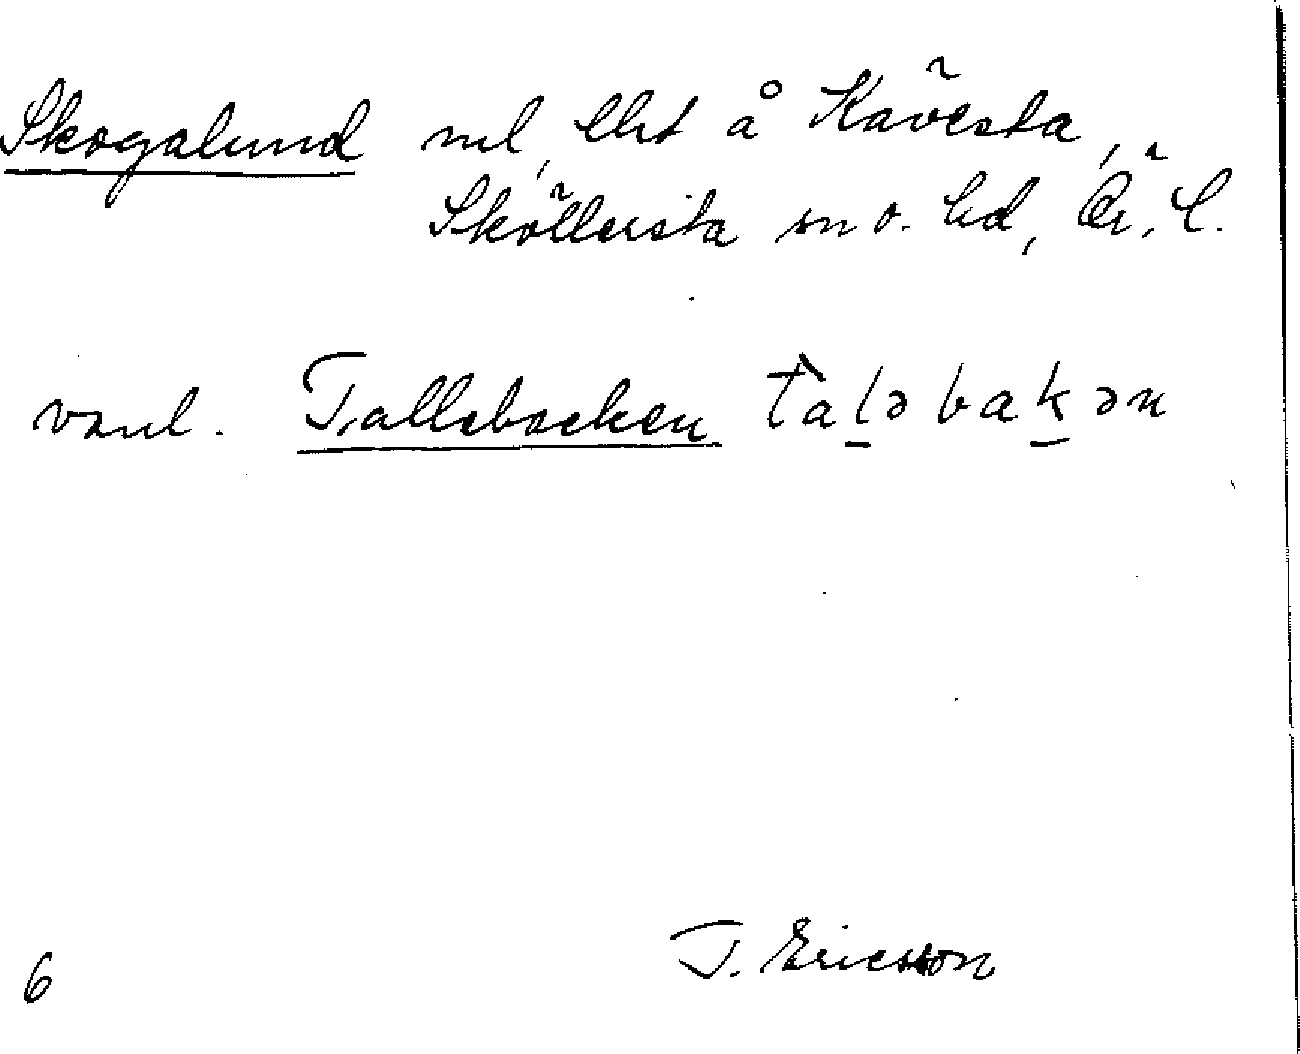 Skogalund nel, lht å Kävesta,
Sköllersta sn o. hd, Ör. l.
vanl. Tallebacken talə bakən
T. Ericsson
6